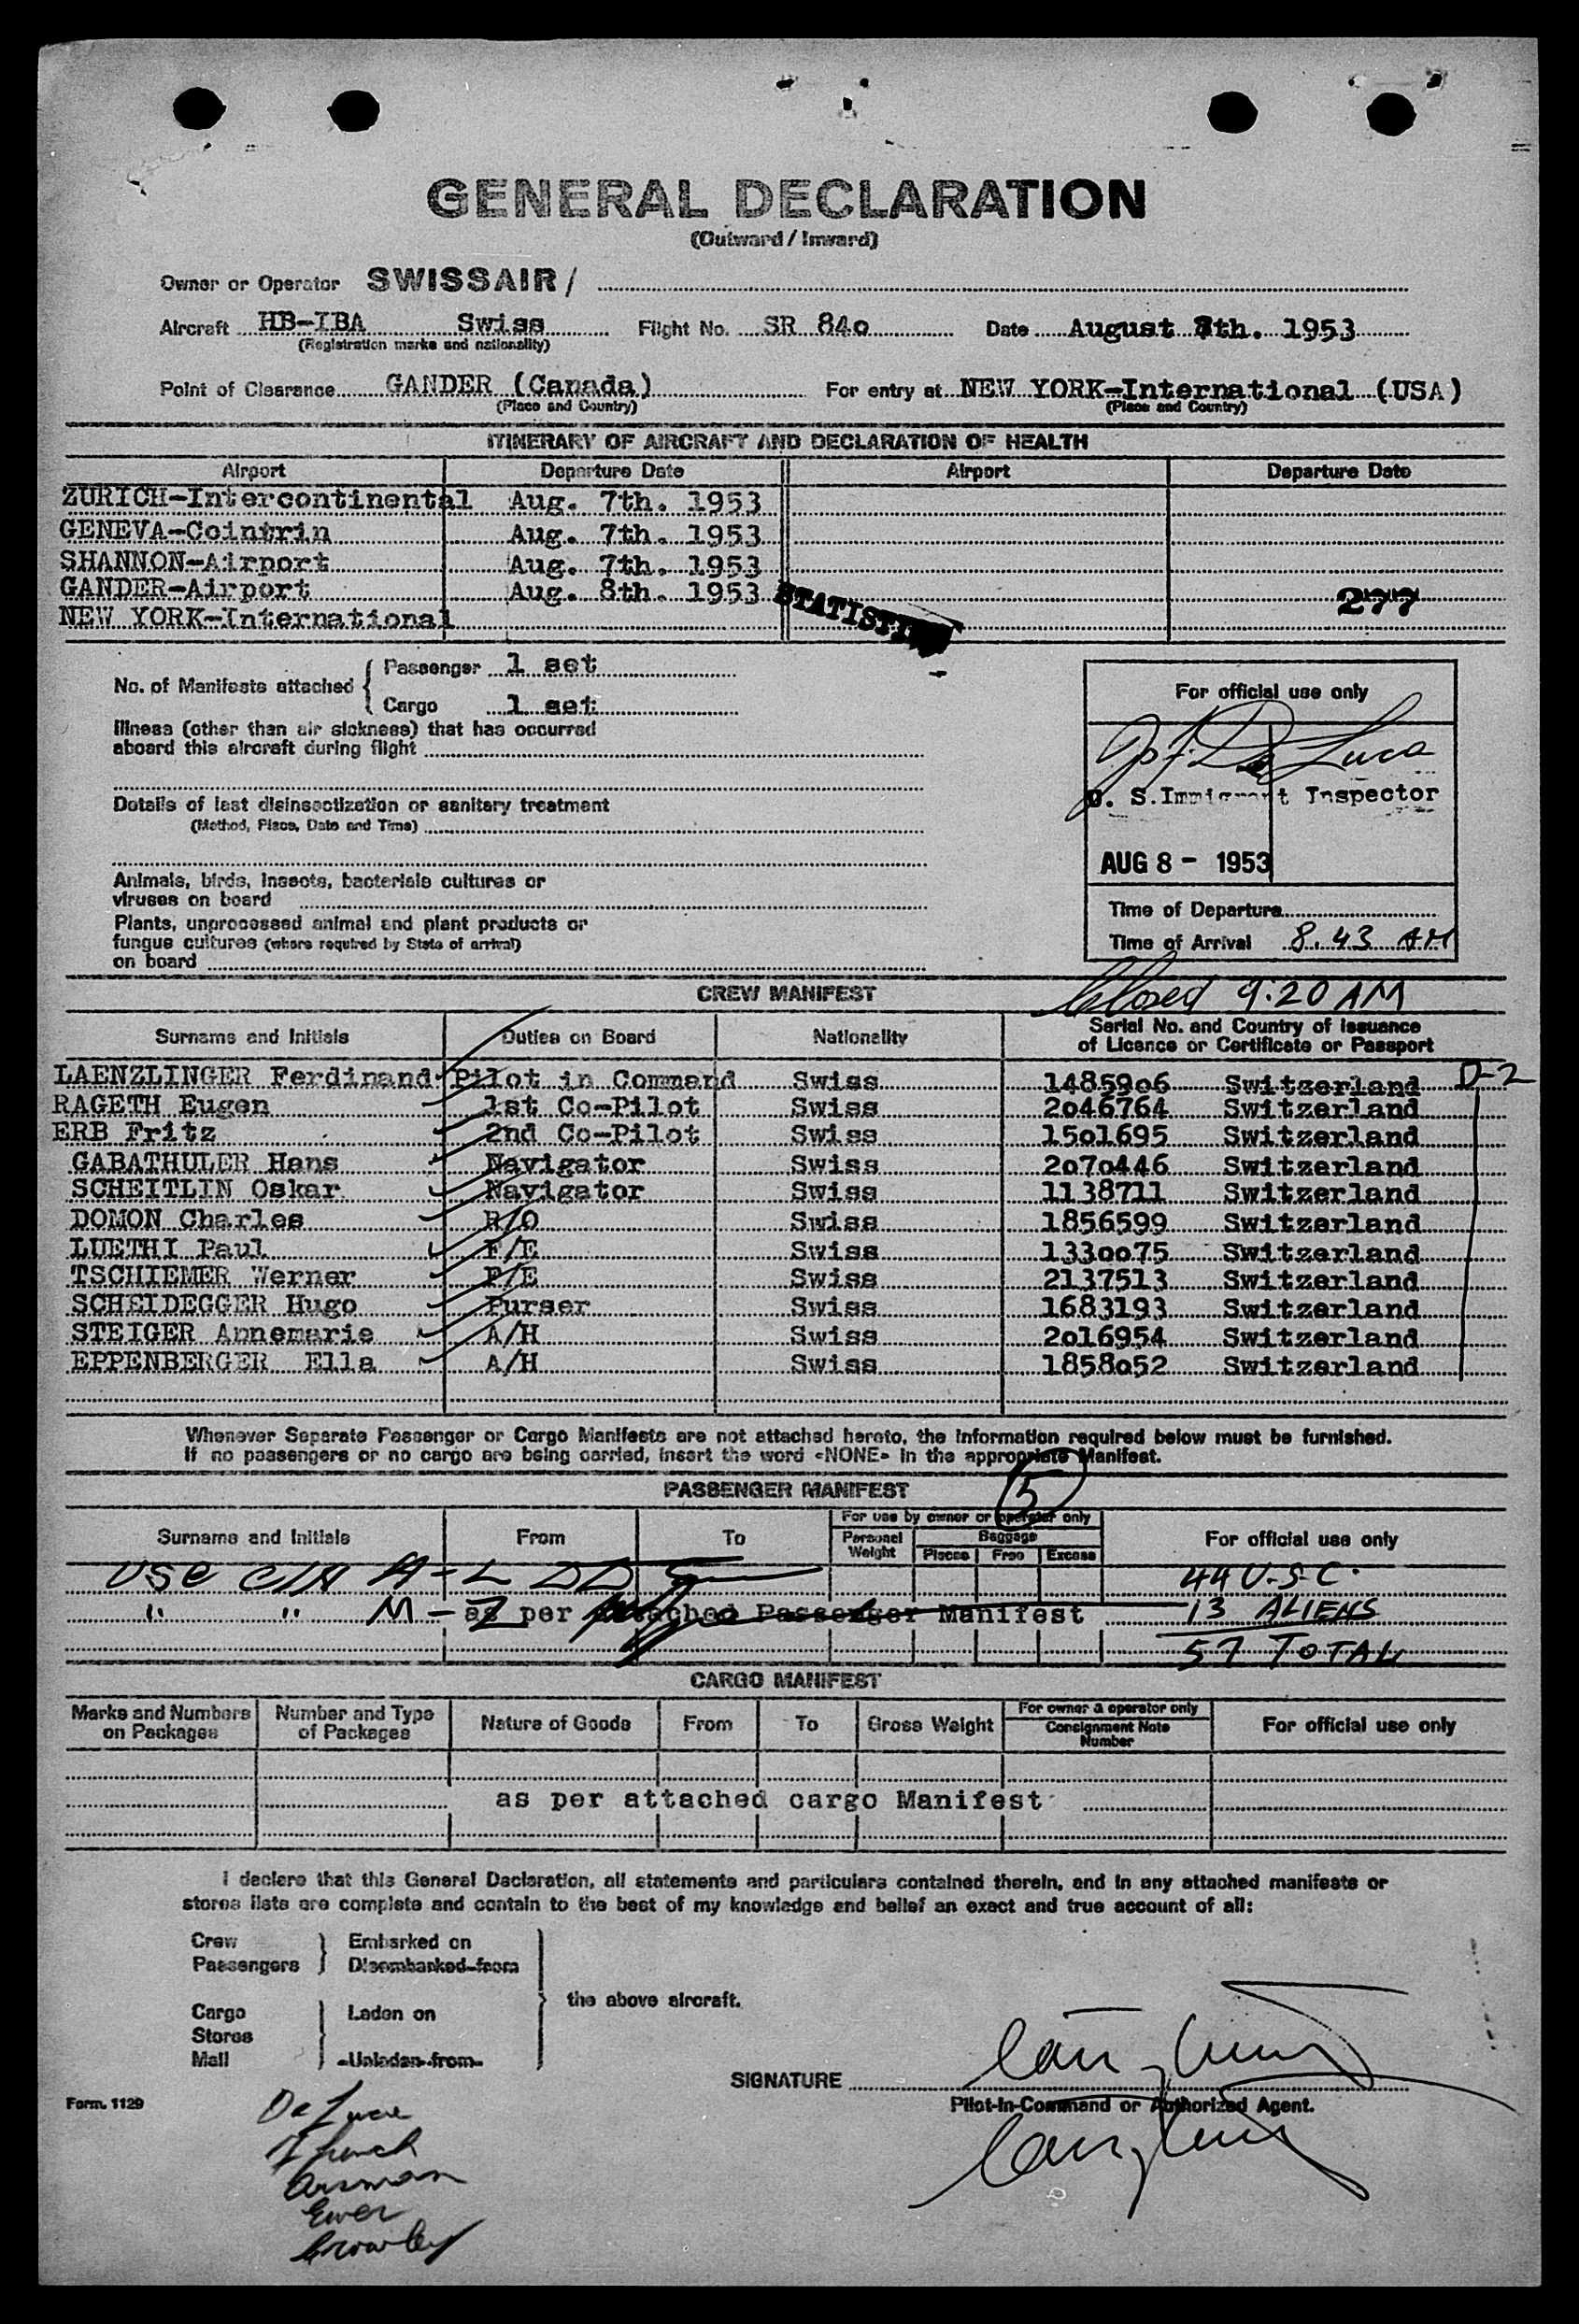 GENERAL DECLARATION
(Outward / Inward)
Owner or Operator SWISSAIR /
Aircraft HB-IBA Swiss Flight No. SR 84o Date August 8th. 1953
(Registration marks and nationality)
Point of Clearance GANDER (Canada) For entry at NEW YORK-International (USA)
(Place and Country) (Place and Country)
ITINERARY OF AIRCRAFT AND DECLARATION OF HEALTH
Airport Departure Date Airport Departure Date
ZURICH-Intercontinental Aug. 7th. 1953
GENEVA-Cointrin Aug. 7th. 1953
SHANNON-Airport Aug. 7th. 1953
GANDER-Airport Aug. 8th. 1953 277
NEW YORK-International
No. of Manifests attached { Passenger 1 set
Cargo 1 set
For official use only
Illness (other than air sickness) that has occurred
aboard this aircraft during flight
De Luca
U. S. Immigrant Inspector
Details of last disinsectization or sanitary treatment
(Method, Place, Date and Time)
AUG 8 - 1953
Animals, birds, insects, bacteriale cultures or
viruses on board
Plants, unprocessed animal and plant products or
fungue cultures (where required by State of arrival)
on board
Time of Departure
Time of Arrival 8.43 AM
CREW MANIFEST Closed 9:20 AM
Surname and Initials Duties on Board Nationality Serial No. and Country of Issuance
of Licence or Certificate or Passport
LAENZLINGER Ferdinand Pilot in Command Swiss 14859o6 Switzerland D-2
RAGETH Eugen 1st Co-Pilot Swiss 2o46764 Switzerland
ERB Fritz 2nd Co-Pilot Swiss 15o1695 Switzerland
GABATHULER Hans Navigator Swiss 2o7o446 Switzerland
SCHEITLIN Oskar Navigator Swiss 1138711 Switzerland
DOMON Charles R/O Swiss 1856599 Switzerland
LUETHI Paul F/E Swiss 133oo75 Switzerland
TSCHIEMER Werner F/E Swiss 2137513 Switzerland
SCHEIDEGGER Hugo Purser Swiss 1683193 Switzerland
STEIGER Annemarie A/H Swiss 2o16954 Switzerland
EPPENBERGER Ella A/H Swiss 1858o52 Switzerland
Whenever Separate Passenger or Cargo Manifests are not attached hereto, the information required below must be furnished.
If no passengers or no cargo are being carried, insert the word «NONE» in the appropriate Manifest.
PASSENGER MANIFEST 5
Surname and Initials From To For use by owner or operator only For official use only
Personel Weight Baggage
Pieces Free Excess
USC C/A A-L 44 U.S.C.
" " M-Z as per attached Passenger Manifest 13 ALIENS
57 TOTAL
CARGO MANIFEST
Marks and Numbers on Packages Number and Type of Packages Nature of Goods From To Gross Weight For owner & operator only Consignment Note Number For official use only
as per attached cargo Manifest
I declare that this General Declaration, all statements and particulars contained therein, and in any attached manifests or
stores lists are complete and contain to the best of my knowledge and belief an exact and true account of all:
Crew } Embarked on
Passengers } Disembarked from
the above aircraft.
Cargo } Laden on
Stores
Mail } Unladen from
SIGNATURE
Form. 1129
Pilot-in-Command or Authorized Agent.
De Luca
Ewer
Crowley